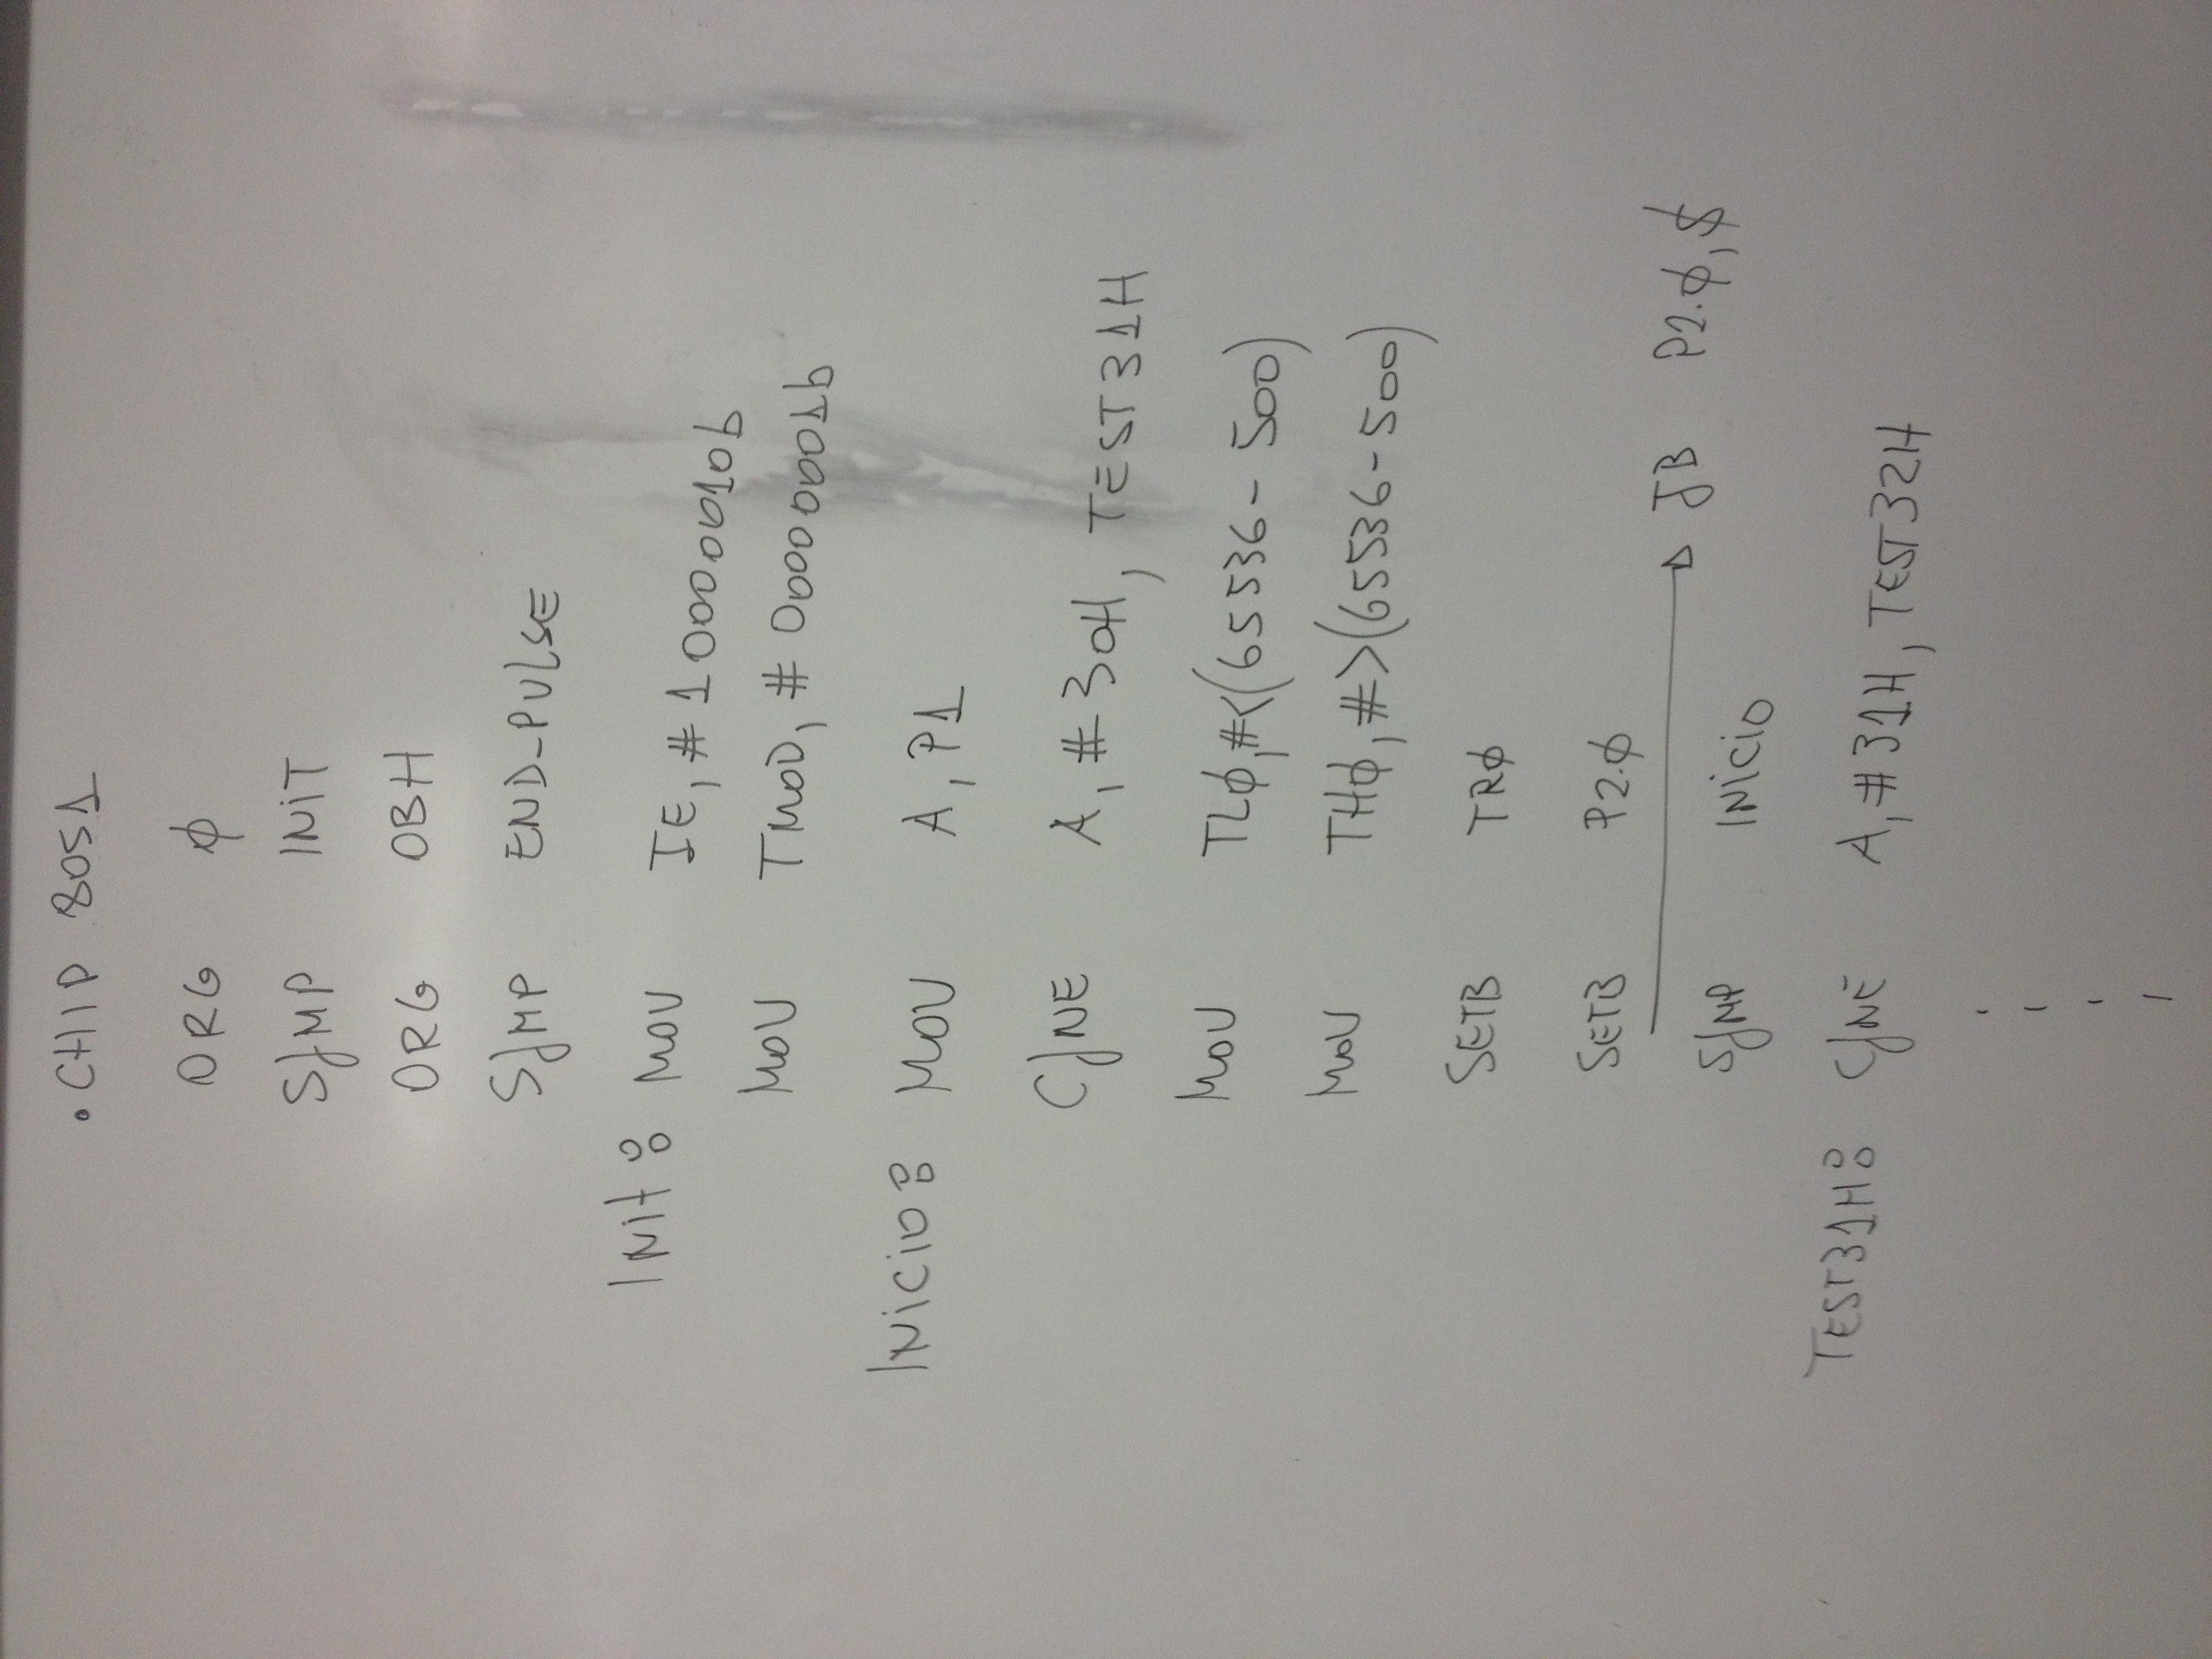 .CHIP 8051
ORG 0
SJMP INIT
ORG 0BH
SJMP END_PULSE
INIT: MOV IE, #10000010b
MOV TMOD, #00000001b
INICIO: MOV A, P1
CJNE A, #30H, TEST31H
MOV TL0, #<(65536-500)
MOV TH0, #>(65536-500)
SETB TR0
SETB P2.0
JB P2.0, $
SJMP INICIO
TEST31H: CJNE A, #31H, TEST32H